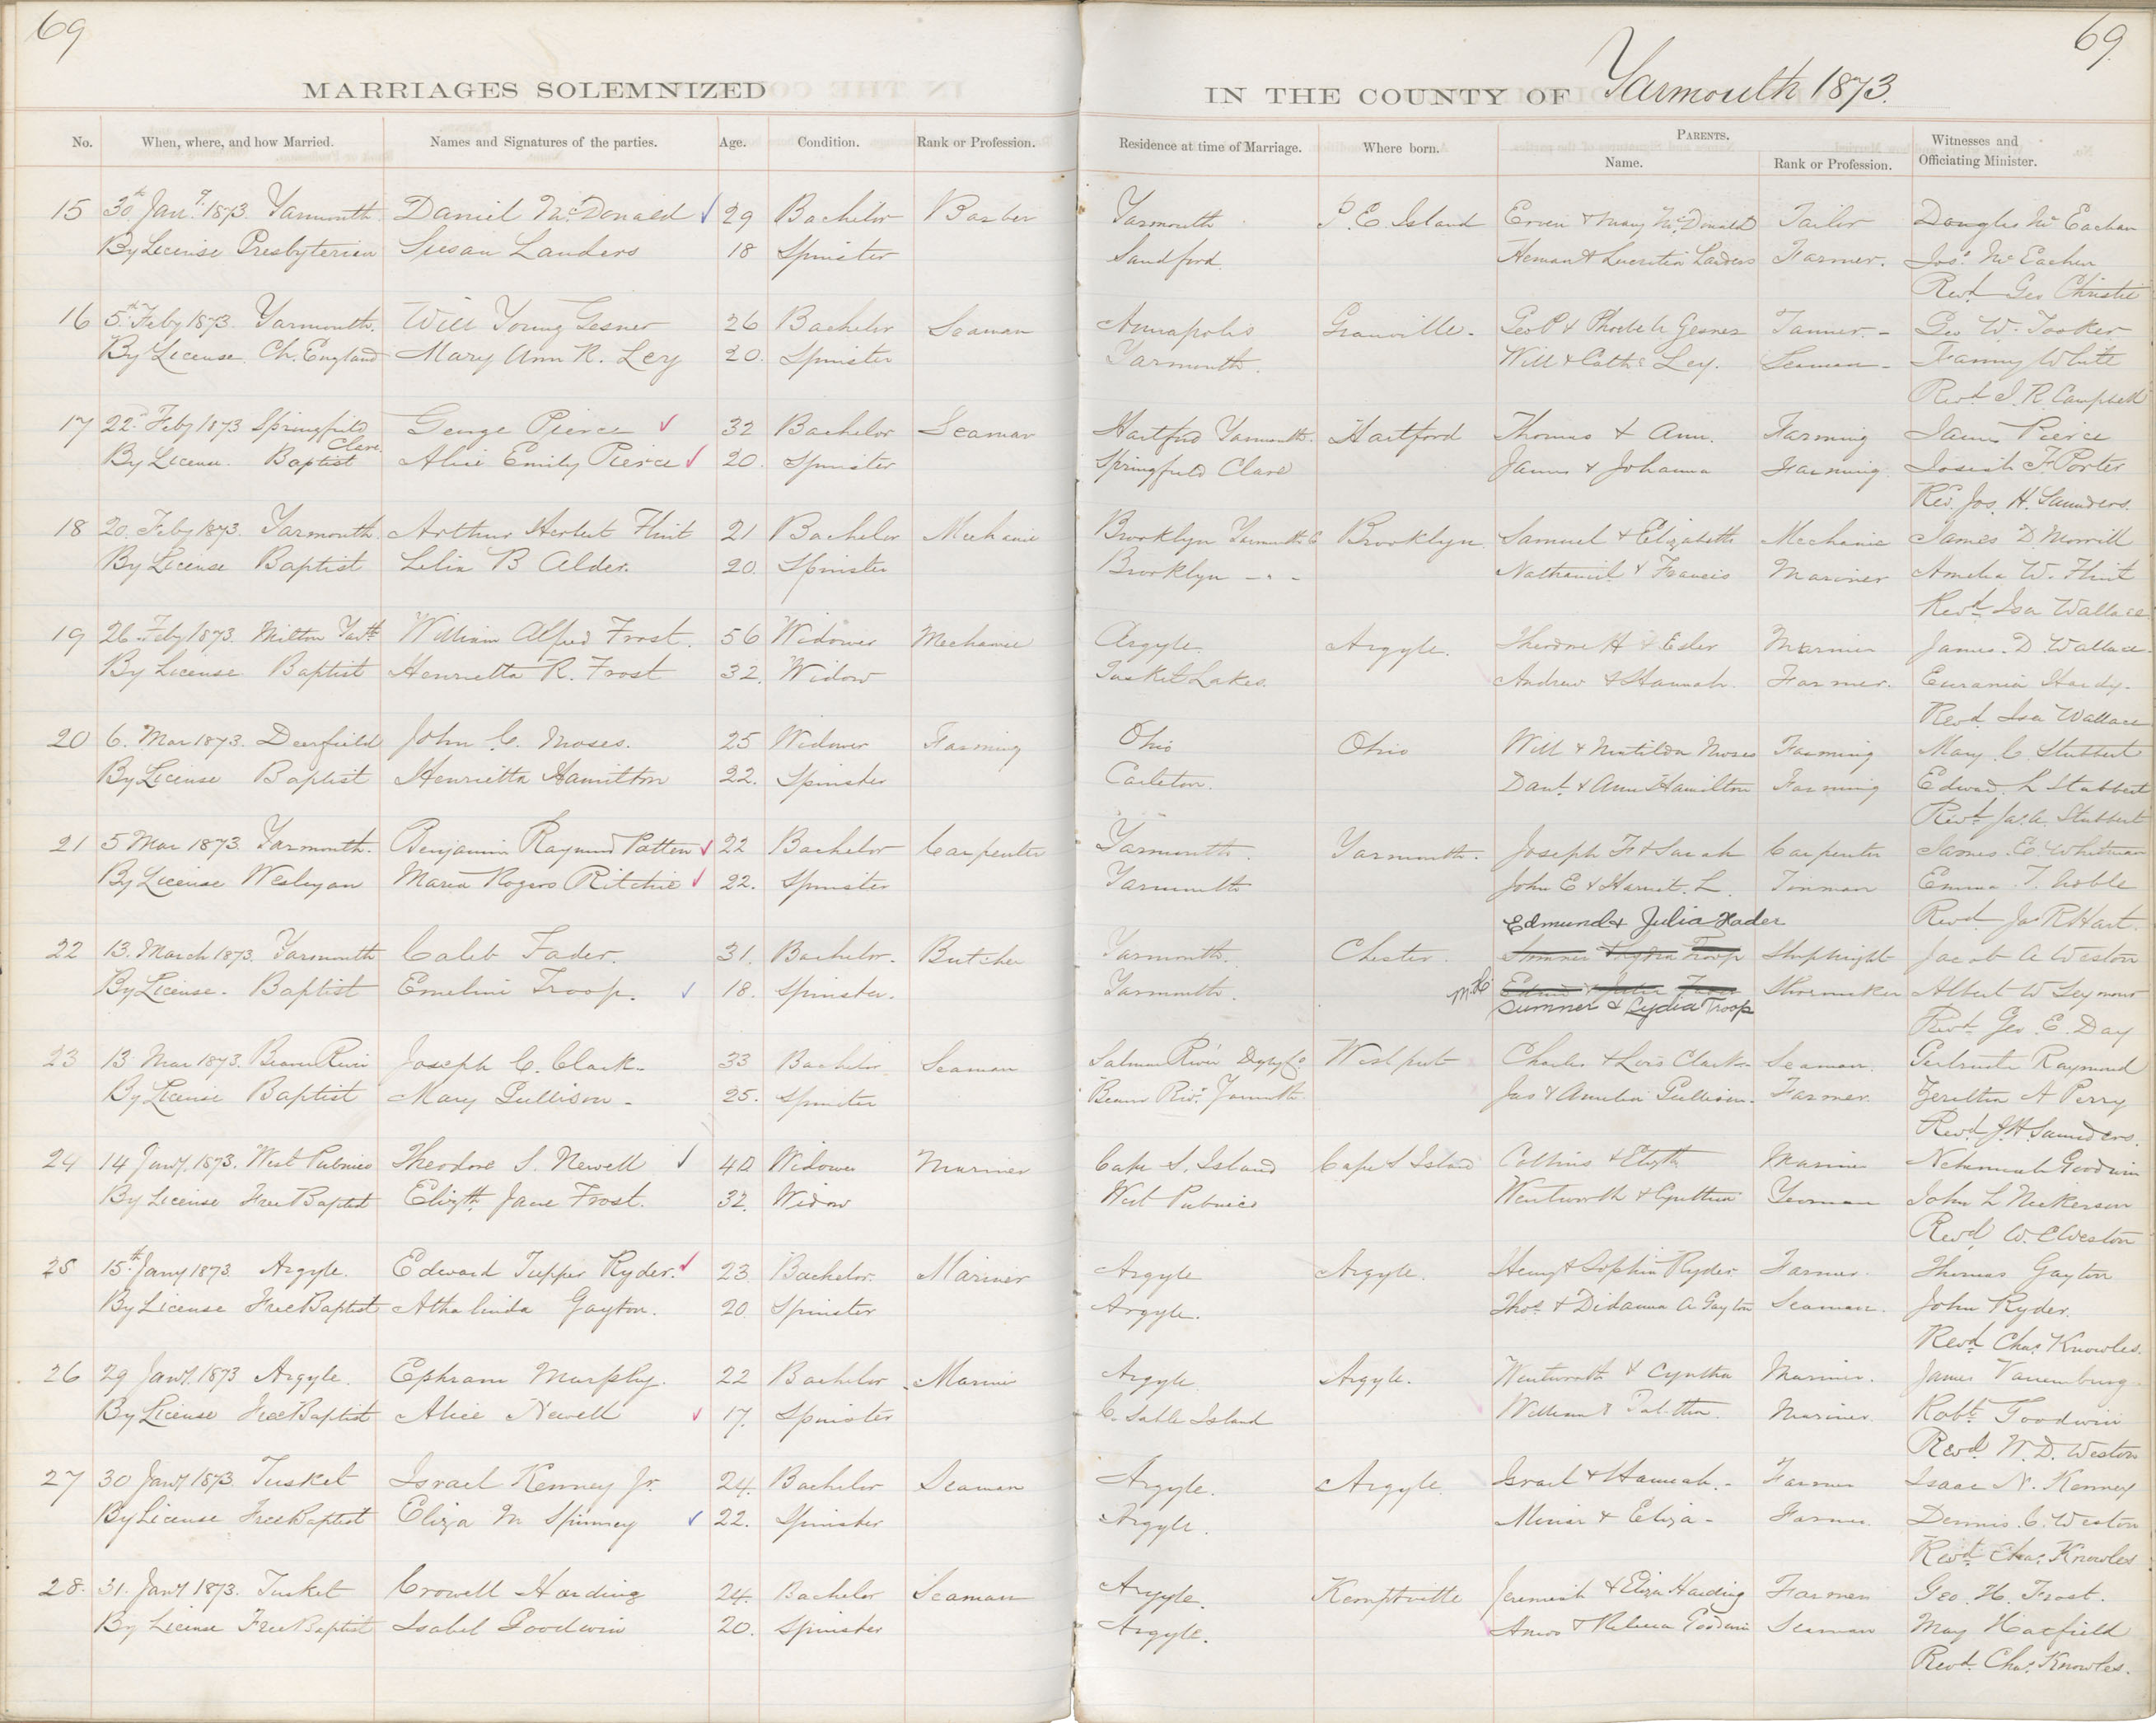 69
69.
MARRIAGES SOLEMNIZED
IN THE COUNTY OF Yarmouth 1873.
No. When, where, and how Married. Names and Signatures of the parties. Age. Condition. Rank or Profession. Residence at time of Marriage. Where born. PARENTS. Name. Rank or Profession. Witnesses and Officiating Minister.
15 30th Jany. 1873. Yarmouth. Daniel McDonald 29 Bachelor Barber Yarmouth P. E Island & Mary McDonald Tailor Douglas McEachan
By License Presbyterian Susan Landers 18 Spinister Sandford. Heman & Lucretia Landers Farmer. Jos. McEachen
Revd. Geo Christie
16 5th Feby 1873. Yarmouth. Will Young Gesner 26 Bachelor Seaman Annapolis Granville. Geo P & Phoebe Gesner Tanner. Geo W. Tooker
By License. Ch. England Mary Ann R. Ley 20. Spinister Yarmouth. Will & Cath Ley. Seaman Fanny White
Revd J. R. Campbell
17 22d Feby 1873 Springfield Clare George Pierce 32 Bachelor Seaman Hartford Yarmouth. Hartford Thomas & Ann. Farming James Pierce
By License. Baptist Alice Emily Pierce 20. Spinister Springfield Clare James & Johanna Farming Josiah F. Porter
Rev. Jos. H. Saunders.
18 20. Feby 1873. Yarmouth. Arthur Herbert Flint 21 Bachelor Mechanic Brooklyn Yarmouth C Brooklyn. Samuel & Elizabeth Mechanic James D. Morrill
By License Baptist Lelia B Alder. 20. Spinister Brooklyn - - - Nathaniel & Francis Mariner Amelia W. Flint
Revd. Isa Wallace
19 26. Feby 1873. Milton Yarth William Alfred Frost. 56 Widower Mechanic Argyle. Argyle. H & Ester Mariner James. D. Wallace.
By License. Baptist Henrietta R. Frost 32. Widow Tusket Lakes. Andrew & Hannah. Farmer. Eurania Hardy.
Revd. Isa Wallace
20 6. Mar 1873. Deerfield John C. Moses. 25 Widower Farming Ohio Ohio Will & Matilda Moses Farming Mary. C. Stubbert
By License Baptist Henrietta Hamilton 22. Spinister Carleton. Danl. & Ann Hamilton Farming Edward. L Stubbert
Revd. Jas. A. Stubbert
21 5 Mar 1873. Yarmouth. Benjamin Raymond Patten 22 Bachelor Carpenter Yarmouth. Yarmouth. Joseph F & Sarah Carpenter James. E. Whitman
By License Wesleyan Maria Rogers Ritchie 22. Spinister Yarmouth John E & Harriet. L. Tinman Emma. T. Noble
Edmund & Julia Fader Revd. Jas R Hart.
22 13. March 1873. Yarmouth Caleb Fader. 31. Bachelor. Butcher Yarmouth. Chester. Sumner & Lydia Troop Shipwright Jacob A Weston
By License. Baptist Emeline Troop. 18. Spinister. Yarmouth. Edmund & Julia Fader Shoemaker Albert W Seymour
Sumner & Lydia Troop Revd. Geo. E. Day
23 13 Mar 1873. Beaver River Joseph C. Clark. 33 Bachelor. Seaman Salmon River Digby Co. Westport Charles & Lois Clark Seaman. Gertrude Raymond
By License Baptist Mary Gullison. 25. Spinister Beaver Rivr. Yarmouth. Jas & Amelia Gullison. Farmer. A Perry
Revd. J. H. Saunders.
24 14 Jany. 1873. West Pubnico Theodore S. Newell 42 Widower Mariner Cape S. Island Cape S Island Collins & Elizth Mariner Nehemiah Goodwin
By License Free Baptist Elizth. Jane Frost. 32. Widow West Pubnico Wentworth & Cynthia Yeoman John L Nickerson
Revd W. C Weston
25 15th Jany 1873. Argyle. Edward Tupper Ryder. 23. Bachelor. Mariner Argyle Argyle. Henry & Sophia Ryder. Farmer. Thomas Gayton
By License Free Baptist Athalinda Gayton. 20. Spinister Argyle. Thos. & Didamia A Gayton Seaman. John Ryder.
Revd. Chas. Knowles.
26 29 Jany. 1873 Argyle. Ephram Murphy. 22 Bachelor Marine Argyle. Argyle. Wentworth & Cyntha Mariner. James Vanemburg
By License Free Baptist Alice Newell 17. Spinister C. Sable Island William & Mariner. Robt. Goodwin
Revd. W. D. Weston
27 30 Jany 1873 Tusket Israel Kenney Jr. 24. Bachelor Seaman Argyle. Argyle Israel & Hannah. Farmer Isaac N. Kenney
By License Free Baptist Eliza M Spinney 22. Spinister Argyle. & Eliza Farmer. Dennis. C. Weston
Revd. Chas. Knowles
28. 31. Jany 1873. Tusket Crowell Harding 24. Bachelor Seaman Argyle. Kemptville Jeremiah & Eliza Harding Farmer Geo. H. Frost.
By License Free Baptist Isabel Goodwin 20. Spinister Argyle. Amos & Rebecca Goodwin Seaman May Hatfield
Revd. Chas. Knowles.